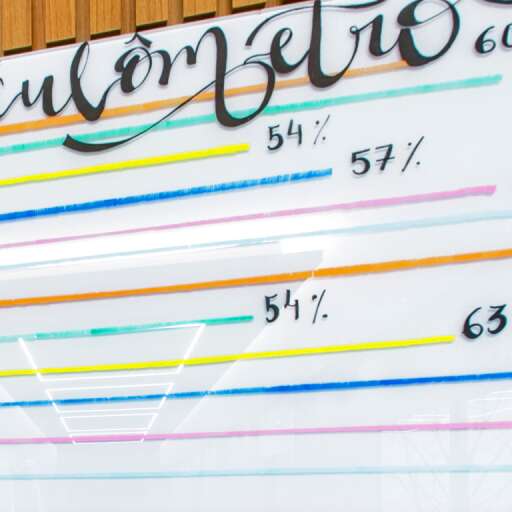 ulômetro
60
54%
57%
54%
63